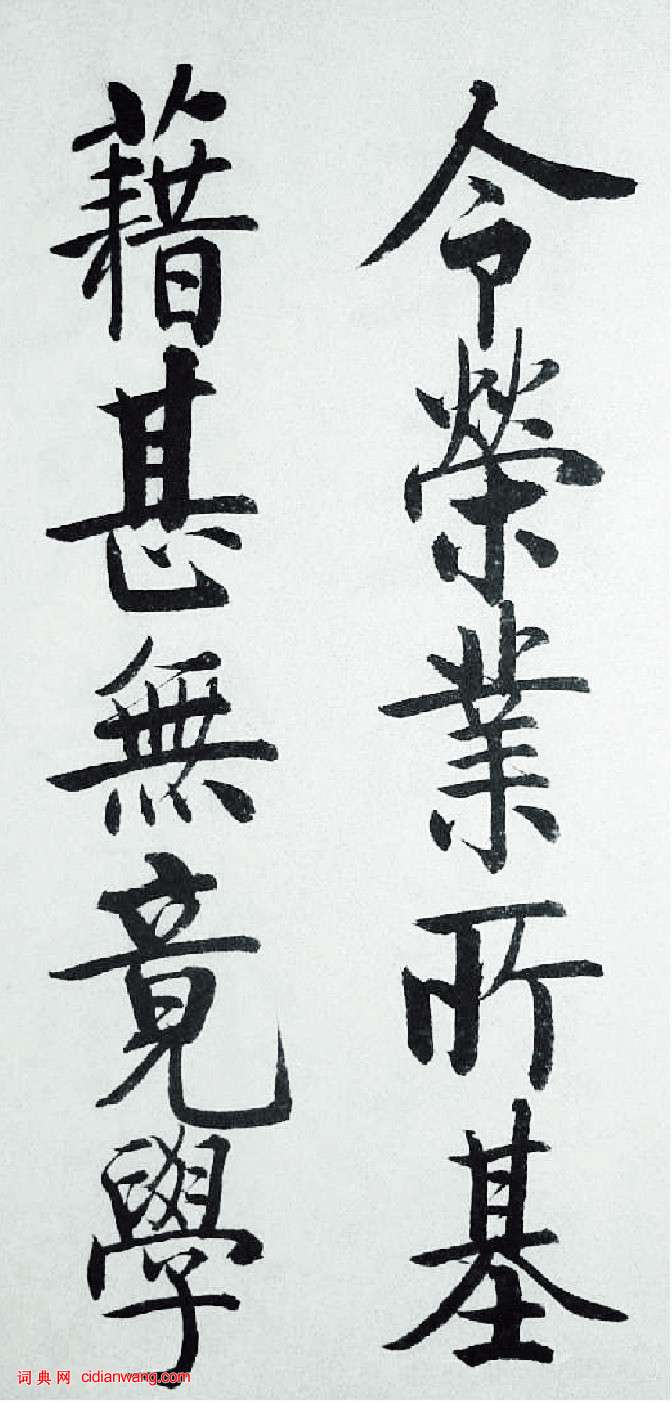 令榮業所基
藉甚無竟學
词典网 cidianwang.com